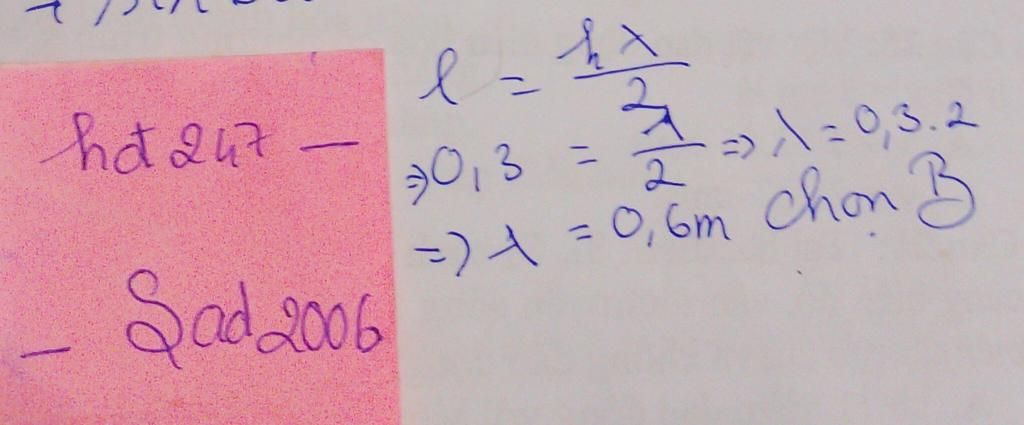 hdt 247 —
— Sad2006
l = kλ/2
=> 0,3 = λ/2 => λ = 0,3.2
=> λ = 0,6m Chọn B